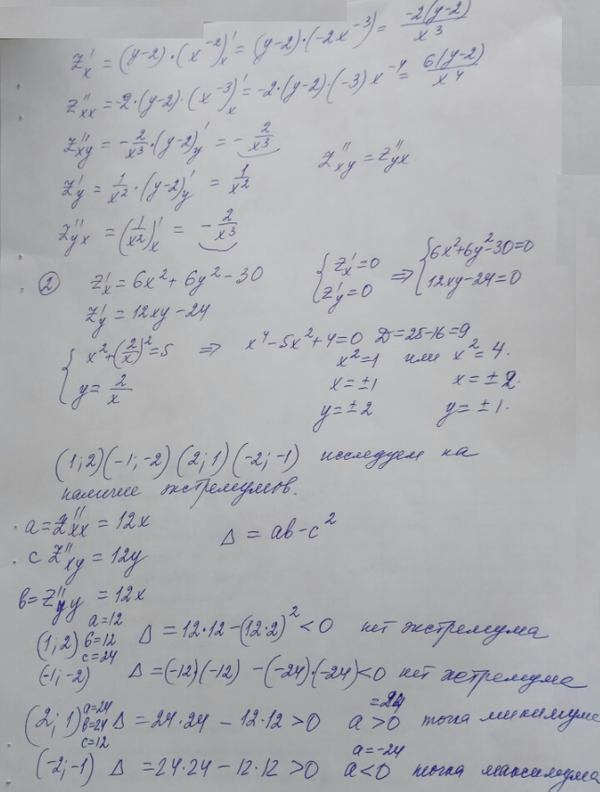 z'ₓ = (y-2)·(x⁻²)'ₓ = (y-2)·(-2x⁻³) = -2(y-2)/x³
z''ₓₓ = -2·(y-2)·(x⁻³)'ₓ = -2·(y-2)(-3)x⁻⁴ = 6(y-2)/x⁴
z''xy = -2/x³·(y-2)'y = -2/x³
z''xy = z''yx
z'y = 1/x²·(y-2)'y = 1/x²
z''yx = (1/x²)'ₓ = -2/x³
② z'ₓ = 6x²+6y²-30 { z'ₓ=0 ⇒ { 6x²+6y²-30=0
z'y = 12xy-24 z'y=0 12xy-24=0
{ x²+(2/x)²=5 ⇒ x⁴-5x²+4=0 D=25-16=9
y = 2/x x²=1 или x²=4.
x=±1 x=±2.
y=±2 y=±1.
(1;2) (-1;-2) (2;1) (-2;-1) исследуем на
наличие экстремумов.
a=z''xx = 12x
Δ = ab-c²
c z''xy = 12y
в=z''yy = 12x
(1;2) a=12 б=12 c=24 Δ = 12·12-(12·2)² <0 нет экстремума
(-1;-2) Δ=(-12)(-12) -(-24)·(-24)<0 нет экстремума
(2;1) a=24 в=24 c=12 Δ = 24·24 - 12·12 >0 a=24>0 точка минимума
(-2;-1) Δ = 24·24-12·12>0 a=-24 a<0 точка максимума